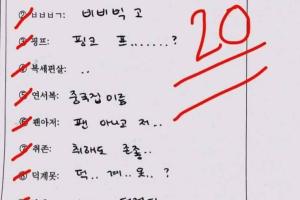 ② ㅂㅂㅂㄱ: 비비빅 고
20
③ 핑프: 핑크 프.......?
④ 복세편살: ..
⑤ 연서복: 중국집 이름
⑥ 팬아저: 팬 아니고 저..
⑦ 취존: 취해도 존좋..
⑧ 덕계못: 덕.. 계.. 못..?